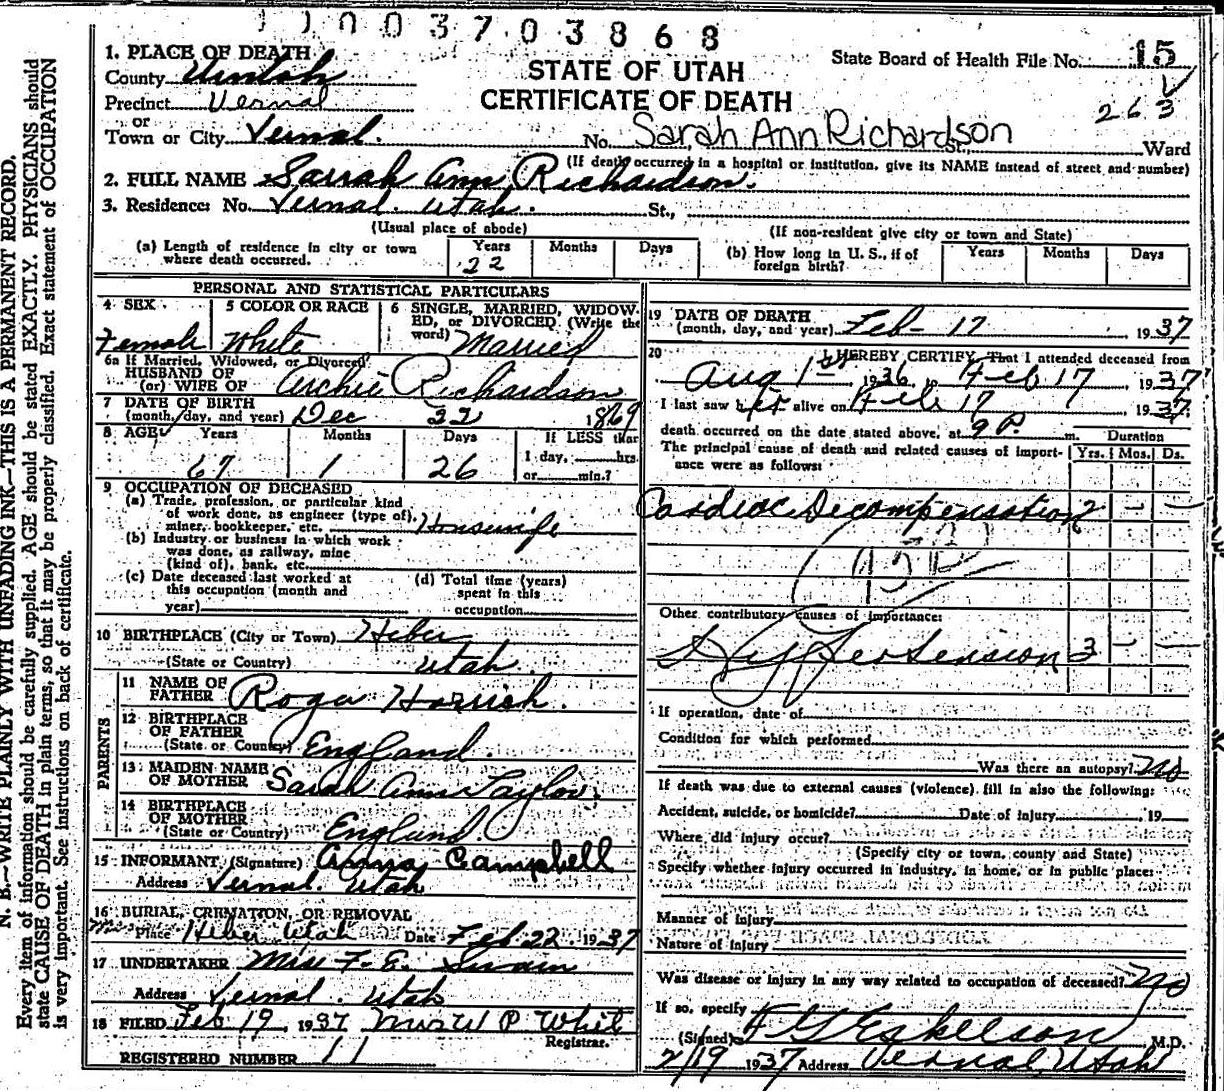 11003703868
1. PLACE OF DEATH
County Uintah
Precinct Vernal
or
Town or City Vernal.
STATE OF UTAH
CERTIFICATE OF DEATH
State Board of Health File No. 15
263
No. Sarah Ann Richardson St., Ward
(If death occurred in a hospital or institution, give its NAME instead of street and number)
2. FULL NAME Sarrah Ann Richardson.
3. Residence: No. Vernal. Utah. St.,
(Usual place of abode) (If non-resident give city or town and State)
(a) Length of residence in city or town where death occurred. Years 22 Months Days
(b) How long in U. S., if of foreign birth? Years Months Days
PERSONAL AND STATISTICAL PARTICULARS
4 SEX Female
5 COLOR OR RACE White
6 SINGLE, MARRIED, WIDOWED, or DIVORCED (Write the word) Married
6a If Married, Widowed, or Divorced
HUSBAND OF
(or) WIFE OF Archie Richardson
7 DATE OF BIRTH
(month, day, and year) Dec 22 1869
8 AGE Years 67 Months 1 Days 26
If LESS than
1 day, hrs.
or min.?
9 OCCUPATION OF DECEASED
(a) Trade, profession, or particular kind
of work done, as engineer (type of),
miner, bookkeeper, etc. Housewife
(b) Industry or business in which work
was done, as railway, mine
(kind of), bank, etc.
(c) Date deceased last worked at
this occupation (month and
year)
(d) Total time (years)
spent in this
occupation
10 BIRTHPLACE (City or Town) Heber
(State or Country) Utah.
PARENTS
11 NAME OF
FATHER Roger Horrich.
12 BIRTHPLACE
OF FATHER
(State or Country) England.
13 MAIDEN NAME
OF MOTHER Sarah Ann Taylor.
14 BIRTHPLACE
OF MOTHER
(State or Country) England
15 INFORMANT (Signature) Anna Campbell
Address Vernal. Utah
16 BURIAL, CREMATION, OR REMOVAL
Place Heber Utah Date Feb 22. 1937
17 UNDERTAKER Mrs F. E. Swain
Address Vernal. Utah
18 FILED Feb 19, 1937 Mrs W P White
Registrar.
REGISTERED NUMBER 11
19 DATE OF DEATH
(month, day, and year) Feb- 17 1937
20 I HEREBY CERTIFY, That I attended deceased from
Aug 1st 1936 to Feb 17, 1937
I last saw her alive on Feb 17, 1937.
death occurred on the date stated above, at 9 P. m.
The principal cause of death and related causes of importance were as follows:
Duration
Yrs. Mos. Ds.
Cardiac Decompensation 2 - -
Other contributory causes of importance:
Hypertension 3 - -
If operation, date of
Condition for which performed
Was there an autopsy? no
If death was due to external causes (violence) fill in also the following:
Accident, suicide, or homicide? Date of injury, 19
Where did injury occur?
(Specify city or town, county and State)
Specify whether injury occurred in industry, in home, or in public place:
Manner of injury
Nature of injury
Was disease or injury in any way related to occupation of deceased? no
If so, specify
(Signed) F G Eskelson M.D.
2/19 1937 Address Vernal, Utah
N. B.—WRITE PLAINLY WITH UNFADING INK—THIS IS A PERMANENT RECORD.
Every item of information should be carefully supplied. AGE should be stated EXACTLY. PHYSICIANS should
state CAUSE OF DEATH in plain terms, so that it may be properly classified. Exact statement of OCCUPATION
is very important. See instructions on back of certificate.